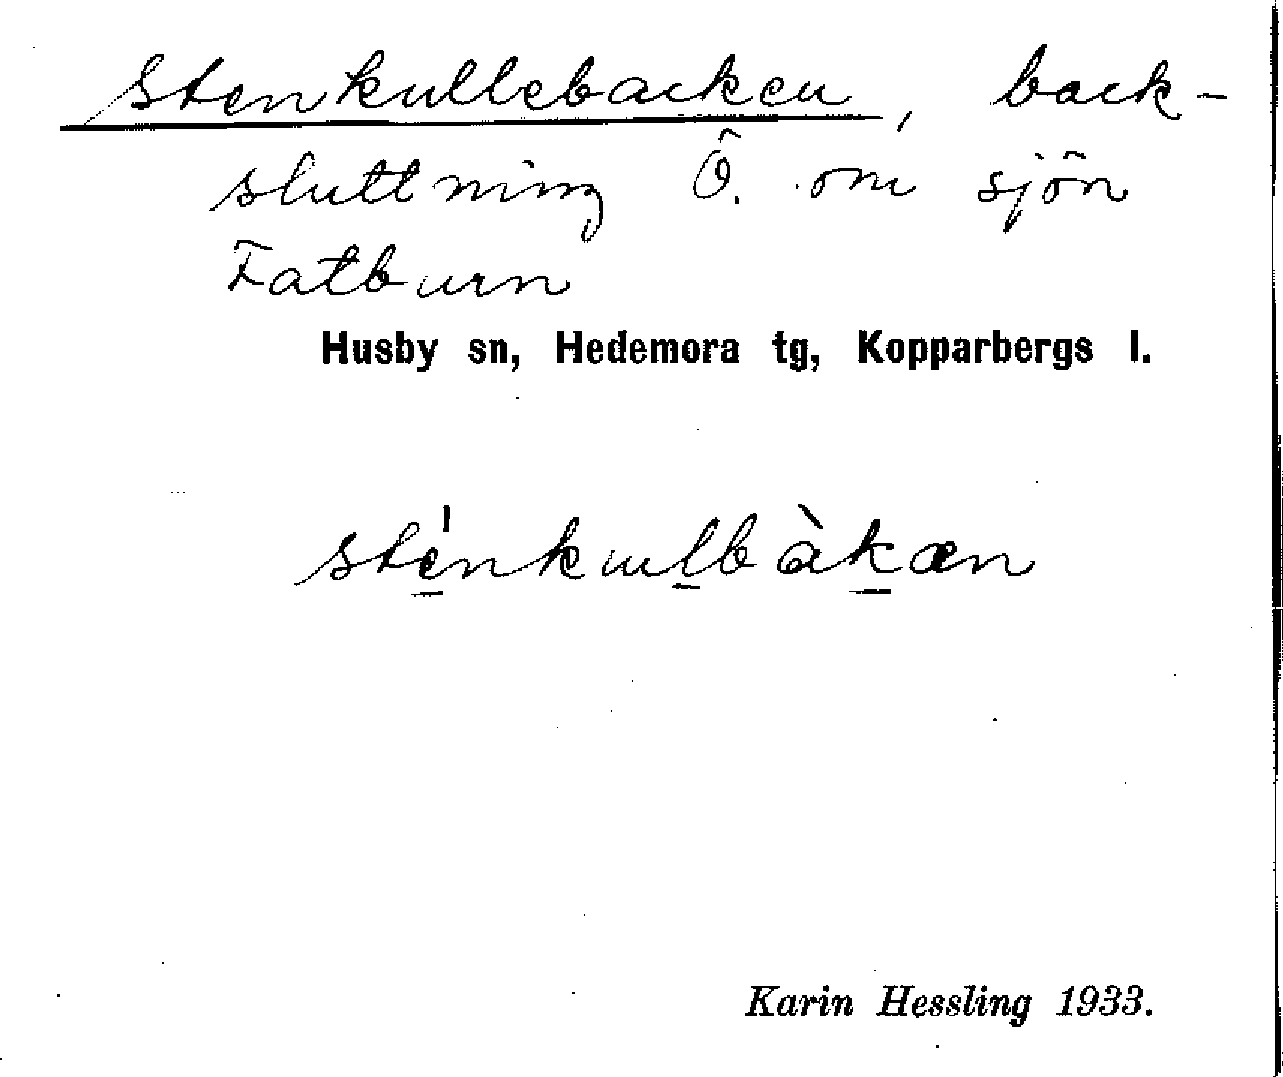 Stenkullebacken, back-
sluttning Ö. om sjön
Fatburn
Husby sn, Hedemora tg, Kopparbergs l.
sténkulbàkæn
Karin Hessling 1933.